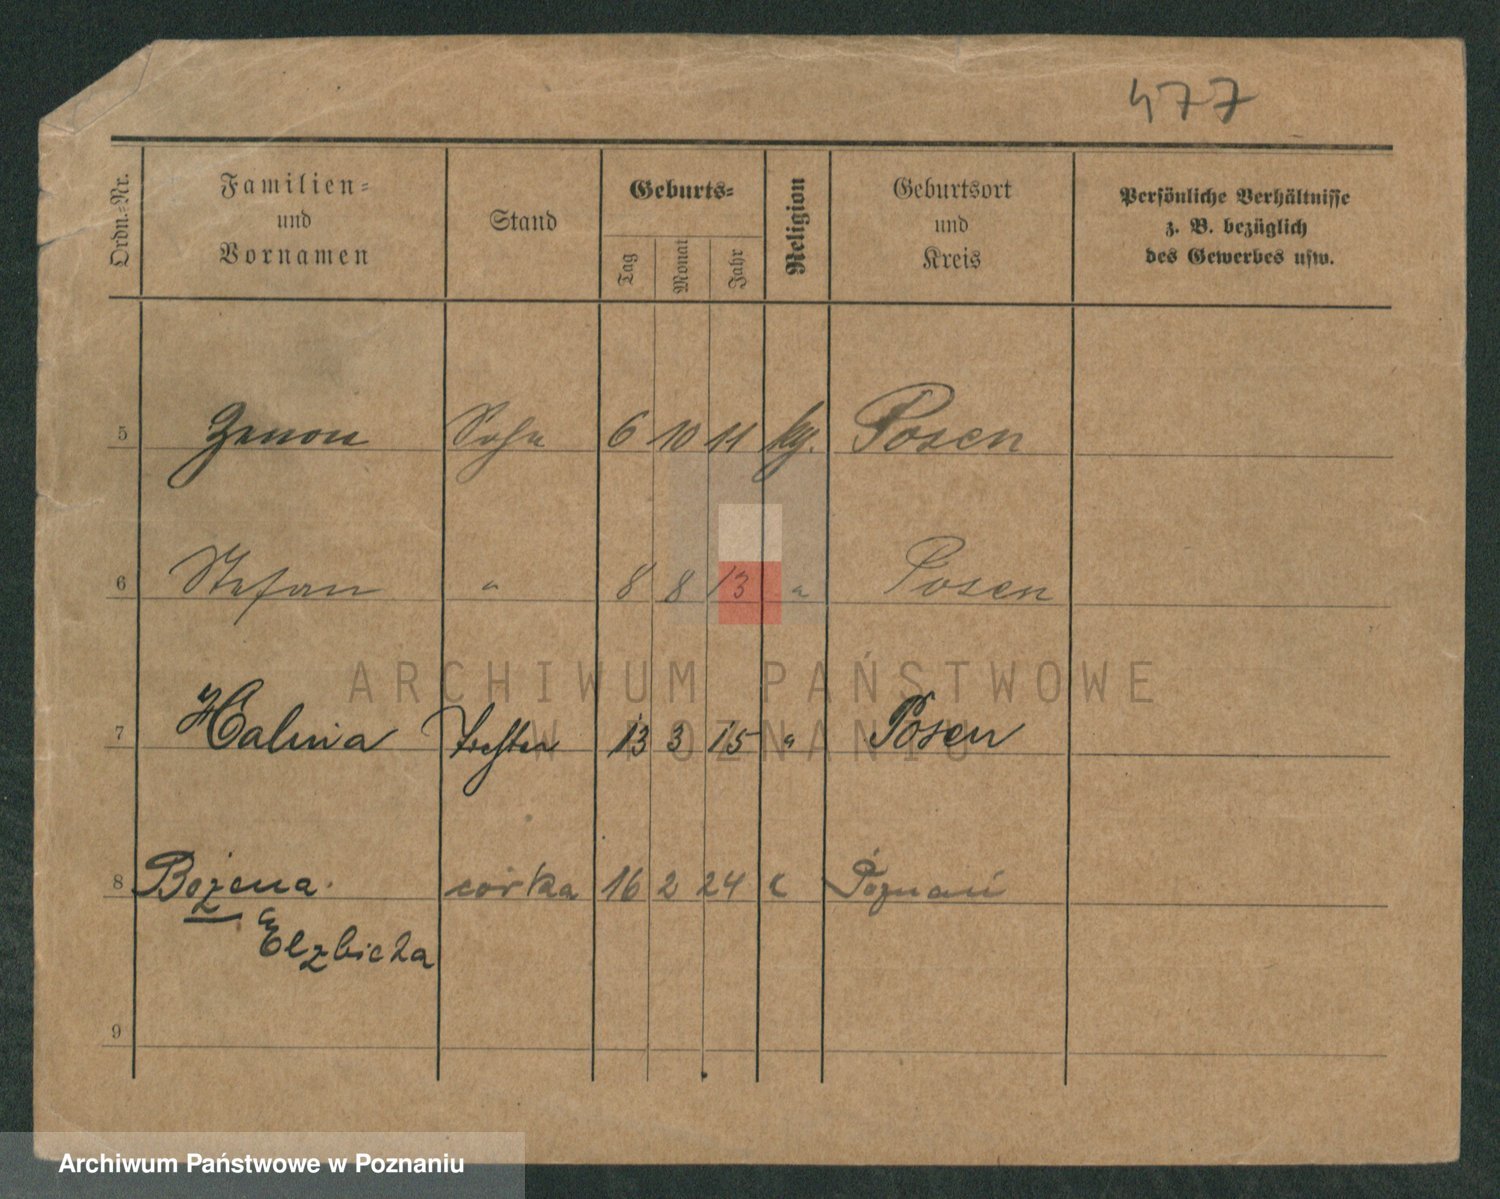 477
Ordn.-Nr.
Familien-
und
Vornamen
Stand
Geburts-
Tag
Monat
Jahr
Religion
Geburtsort
und
Kreis
Persönliche Verhältnisse
z. B. bezüglich
des Gewerbes usw.
5 Zenon Sohn 6 10 11 Posen
6 Stefan " 8 8 13 " Posen
ARCHIWUM PAŃSTWOWE
W POZNANIU
7 Halina Tochter 13 3 15 " Posen
8 Bożena córka 16 2 24 Poznań
Elzbieta
9
Archiwum Państwowe w Poznaniu